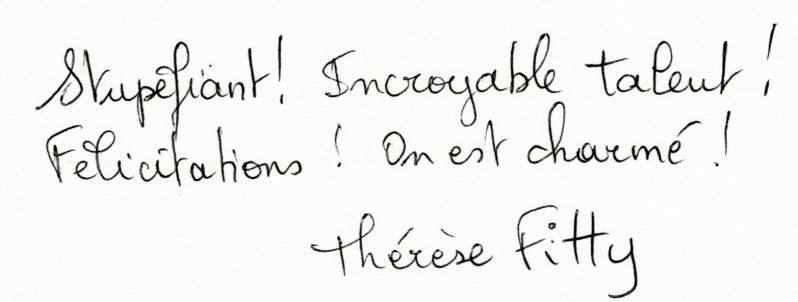 Stupéfiant! Incroyable talent !
Félicitations ! On est charmé !
Thérèse Fitty